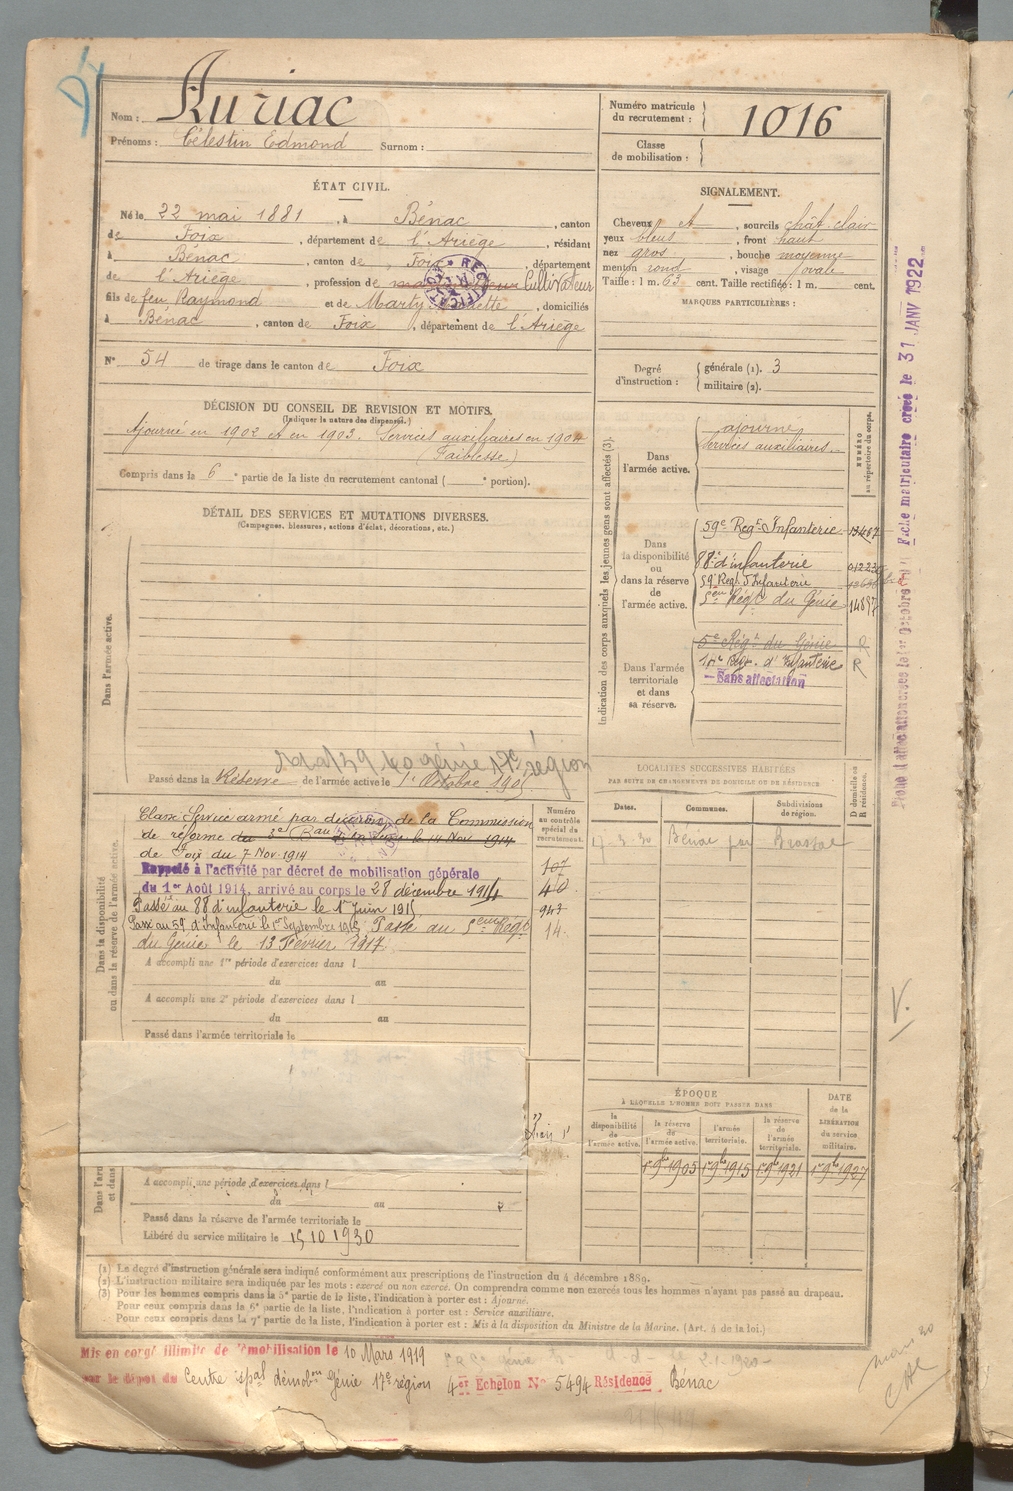 Nom : Auriac
Prénoms : Célestin Edmond Surnom :
Numéro matricule du recrutement : 1016
Classe de mobilisation :
ÉTAT CIVIL.
Né le 22 mai 1881, à Bénac, canton
de Foix, département de l'Ariège, résidant
à Bénac, canton de Foix, département
de l'Ariège, profession de Cultivateur
fils de feu Raymond et de Marty, domiciliés
à Bénac, canton de Foix, département de l'Ariège
N° 54 de tirage dans le canton de Foix
SIGNALEMENT.
Cheveux et, sourcils chât clair
yeux bleus, front haut
nez gros, bouche moyenne
menton rond, visage ovale
Taille : 1 m. 63 cent. Taille rectifiée : 1 m. cent.
MARQUES PARTICULIÈRES :
Degré d'instruction : générale (1). 3
militaire (2).
DÉCISION DU CONSEIL DE REVISION ET MOTIFS.
(Indiquer la nature des dispenses.)
Ajourné en 1902 et en 1903. Services auxiliaires en 1904
(Faiblesse)
Compris dans la 6e partie de la liste du recrutement cantonal ( e portion).
DÉTAIL DES SERVICES ET MUTATIONS DIVERSES.
(Campagnes, blessures, actions d'éclat, décorations, etc.)
Dans l'armée active.
Indication des corps auxquels les jeunes gens sont affectés (3).
NUMÉRO au répertoire du corps.
Dans l'armée active.
ajourné
Services auxiliaires
Dans la disponibilité ou dans la réserve de l'armée active.
59e Régt Infanterie
88e d'infanterie
59e Régt d'Infanterie
5eme Régt du Génie 14897
Dans l'armée territoriale et dans sa réserve.
5e Régt du Génie R
Régt d'Infanterie R
Sans affectation
génie 17e région
Passé dans la Réserve de l'armée active le 1er Octobre 1905
LOCALITÉS SUCCESSIVES HABITÉES
PAR SUITE DE CHANGEMENTS DE DOMICILE OU DE RÉSIDENCE
Dates. Communes. Subdivisions de région. D domicile ou R résidence.
Bénac par Brassac
Dans la disponibilité ou dans la réserve de l'armée active.
Numéro au contrôle spécial du recrutement.
Classé Service armé par décision de la Commission
de réforme le 14 Nov 1914
de Foix du 7 Nov. 1914
Rappelé à l'activité par décret de mobilisation générale
du 1er Août 1914, arrivé au corps le 28 décembre 1914
Passé au 88e d'infanterie le 1er Juin 1915
Passé au 59e d'Infanterie le 1er Septembre 1915 Passé au 5eme Régt
du Génie le 13 Février 1917.
107
40
943
14
A accompli une 1re période d'exercices dans l
du au
A accompli une 2e période d'exercices dans l
du au
Passé dans l'armée territoriale le
ÉPOQUE
À LAQUELLE L'HOMME DOIT PASSER DANS
la disponibilité de l'armée active. la réserve de l'armée active. l'armée territoriale. la réserve de l'armée territoriale. DATE de la LIBÉRATION du service militaire.
1er 9bre 1905 1er 9bre 1915 1er 9bre 1921 1er 9bre 1927
A accompli une période d'exercices dans l
du au
Passé dans la réserve de l'armée territoriale le
Libéré du service militaire le 15 10 1930
(1) Le degré d'instruction générale sera indiqué conformément aux prescriptions de l'instruction du 4 décembre 1889.
(2) L'instruction militaire sera indiquée par les mots : exercé ou non exercé. On comprendra comme non exercés tous les hommes n'ayant pas passé au drapeau.
(3) Pour les hommes compris dans la 5e partie de la liste, l'indication à porter est : Ajourné.
Pour ceux compris dans la 6e partie de la liste, l'indication à porter est : Service auxiliaire.
Pour ceux compris dans la 7e partie de la liste, l'indication à porter est : Mis à la disposition du Ministre de la Marine. (Art. 4 de la loi.)
Mis en congé illimité de démobilisation le 10 Mars 1919
par le dépôt du Centre spal démobon Génie 17e région 4er Echelon N° 5494 Résidence Bénac
Fiche matriculaire créée le 31 JANV 1922
V.